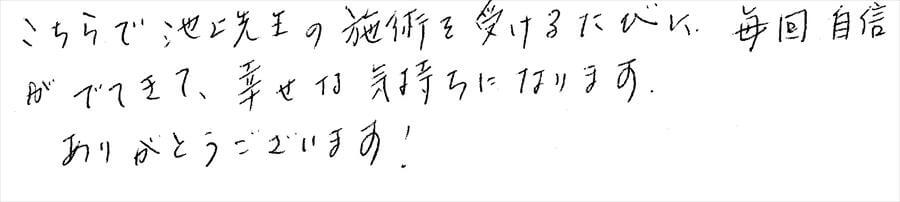 こちらで池上先生の施術を受けるたびに、毎回自信
がでてきて、幸せな気持ちになります。
ありがとうございます!